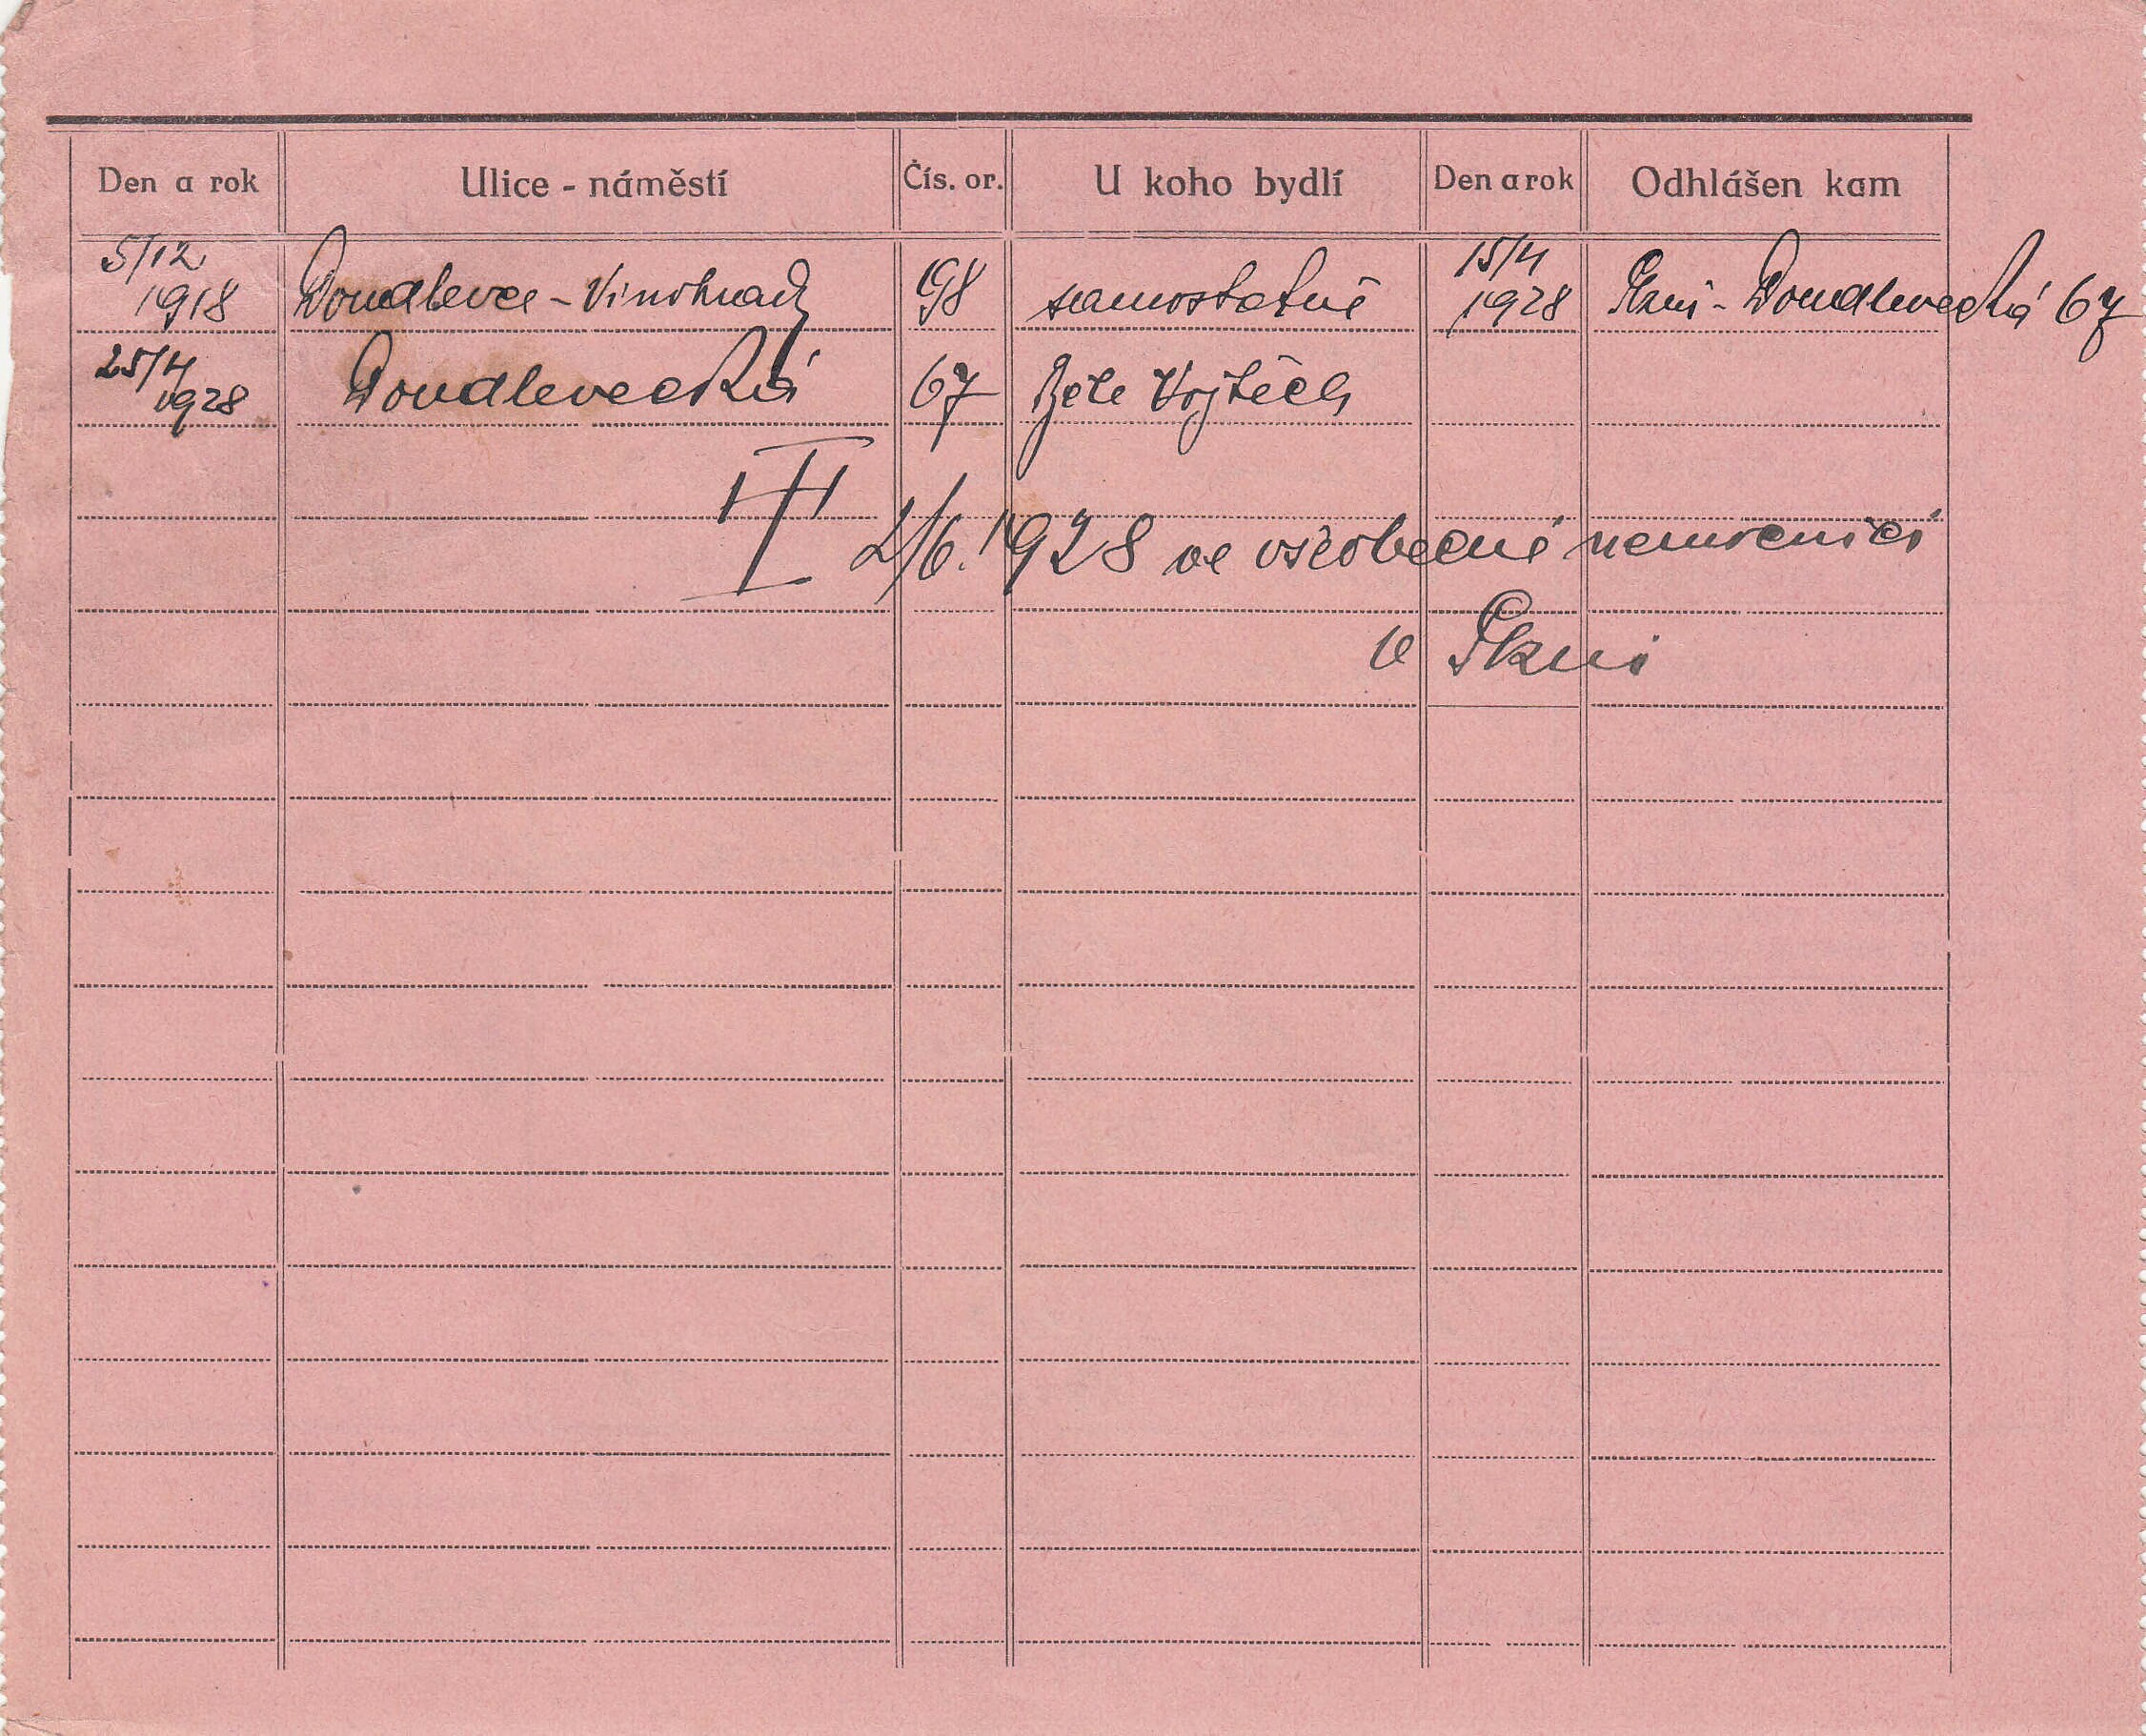 Den a rok Ulice - náměstí Čís. or. U koho bydlí Den a rok Odhlášen kam
5/12 1918 Doudlevce - Vinohrady 198 samostatně 15/4 1928 Plzni - Doudlevecká 67
25/4 1928 Doudlevecká 67 Vojtěch
2/6. 1928 ve všeobecné nemocnici
v Plzni